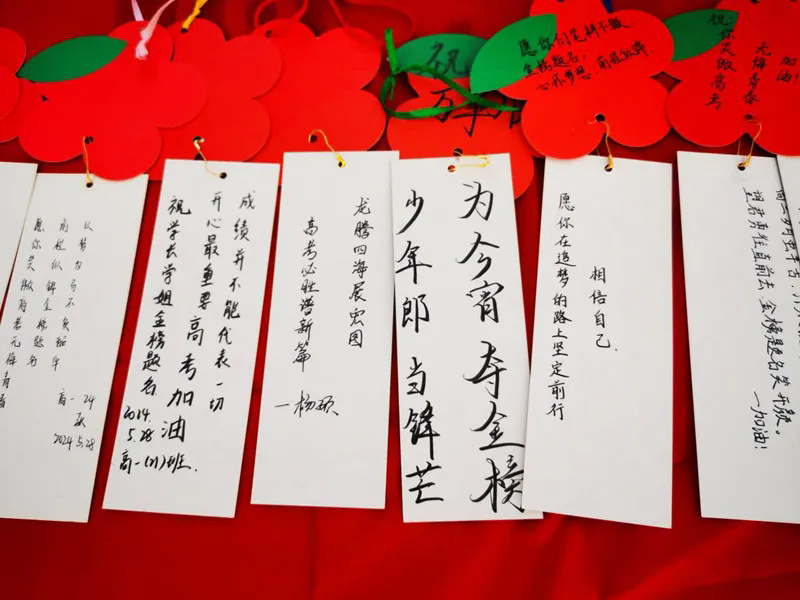 祝
万事
愿你们
金榜题名,
心怀梦想,前程似锦.
祝:
你笑傲高考
无悔青春
加油!
以梦为马不负韶华
前程似锦金榜题名
愿你笑傲
无悔青春
高一 24
2024.5.28
成绩并不能代表一切
开心最重要高考加油
祝学长学姐金榜题名
2024.
5.28
高一(21)班.
龙腾四海展宏图
高考必胜谱新篇
一杨
为今宵夺金榜
少年郎当锋芒
相信自己.
愿你在追梦的路上坚定前行
望君勇往直前去,金榜题名笑开颜。
一加油!